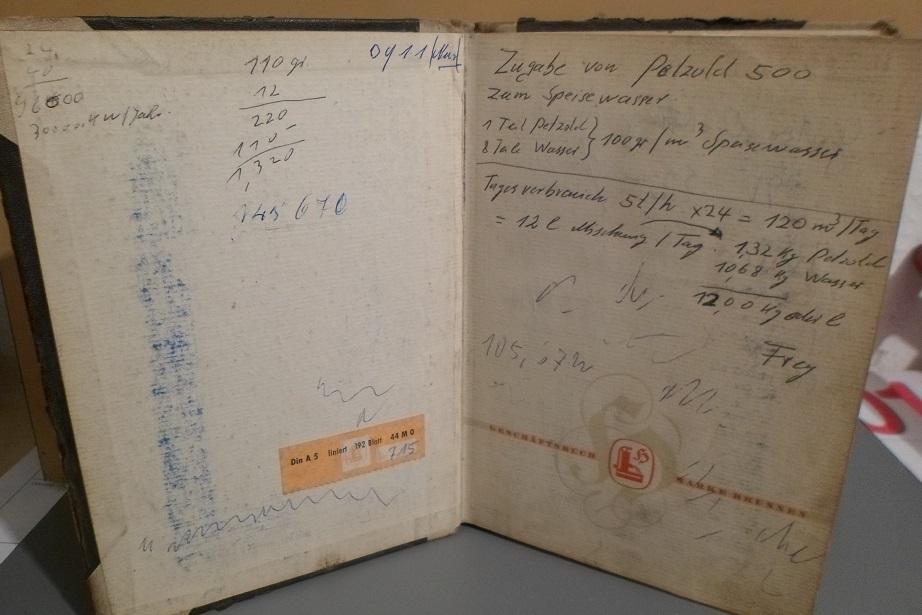 24
40
110 gr.
12
220
110-
1,320
145 670
Din A 5 liniert 192 Blatt 44 M 0
7.15
Zugabe von Petzold 500
zum Speisewasser
1 Teil Petzold
8 Teile Wasser } 100 gr/m³ Speisewasser
Tagesverbrauch 5t/h x24 = 120 m³/Tag
= 12 l Mischung / Tag. 1,32 Kg Petzold
10,68 Kg Wasser
12,00 Kg oder l
Frey
GESCHÄFTSBUCH MARKE BRUNNEN